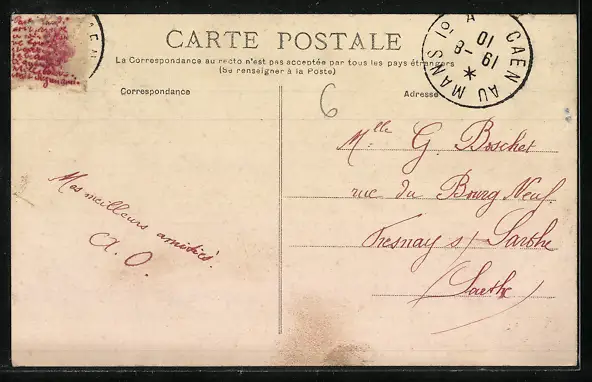 CARTE POSTALE
La Correspondance au recto n'est pas acceptée par tous les pays étrangers
(Se renseigner à la Poste)
Correspondance
Adresse
6
CAEN AU MANS
10
19 - 8
Mes meilleurs amitiés.
A. O.
Mlle G. Boschet
rue du Bourg Neuf.
Fresnay s/ Sarthe
Sarthe